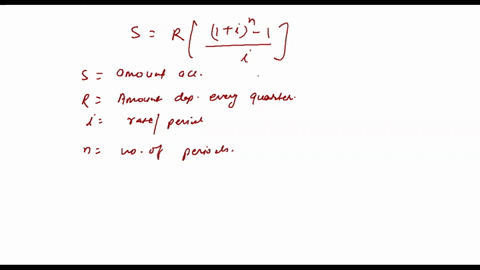 S = R [ (1+i)^n - 1 / i ]
S = amount acc.
R = Amount dep. every quarter.
i = rate/ period
n = no. of periods.